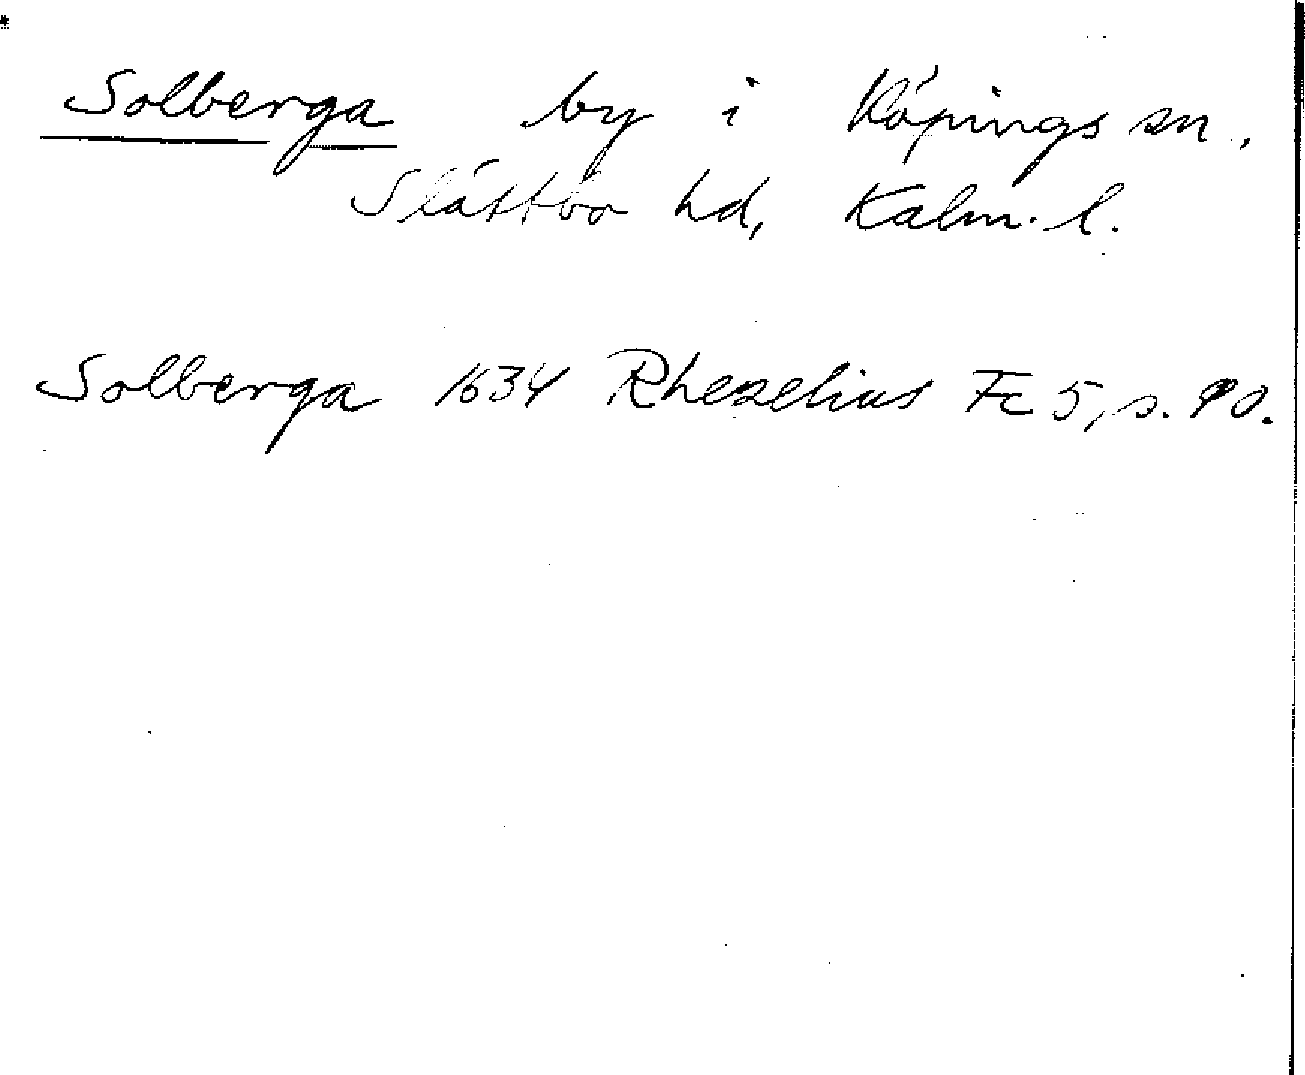 Solberga by i Köpings sn.,
Slättbo hd, Kalm. l.
Solberga 1634 Rhezelius Fc 5, s. 90.